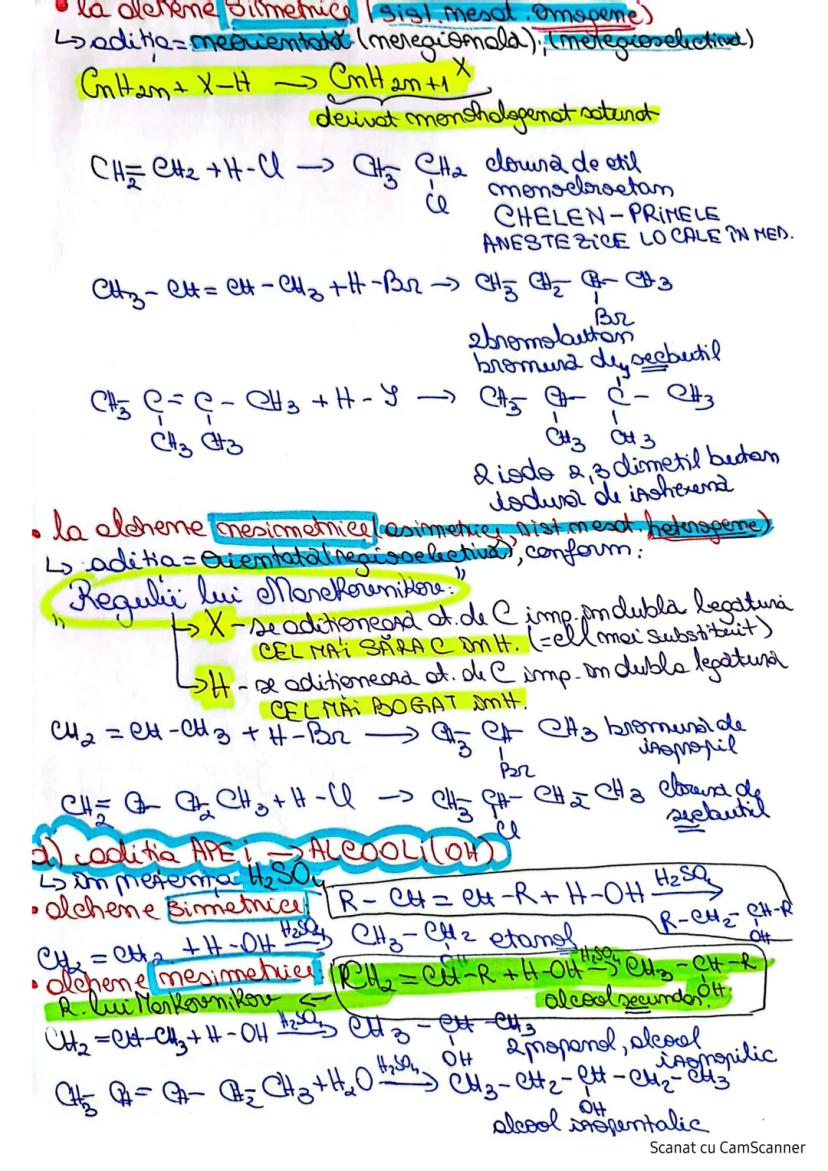 • la alchene simetrice (sist. mezot. omogene)
↳ adiția = neorientată (neregională), (neregioselectivă)
CnH2n + X-H → CnH2n+1 X
derivat monohalogenat saturat
CH2=CH2 + H-Cl → CH3-CH2 clorură de etil
Cl monocloroetan
CHELEN - PRIMELE
ANESTEZICE LOCALE ÎN MED.
CH3-CH=CH-CH3 + H-Br → CH3-CH2-CH-CH3
Br
2bromobutan
bromură de secbutil
CH3-C=C-CH3 + H-I → CH3-CH-C-CH3
CH3 CH3 CH3 CH3
2 iodo 2,3 dimetil butan
iodură de izohexenă
• la alchene nesimetrice (asimetrice, sist. mezot. heterogene)
↳ adiția = orientată (regioselectivă), conform:
"Regulii lui Markovnikov:"
→ X - se adiționează at. de C imp. în dubla legătură
CEL MAI SĂRAC ÎN H. (=cel mai substituit)
→ H - se adiționează at. de C imp. în dubla legătură
CEL MAI BOGAT ÎN H.
CH2=CH-CH3 + H-Br → CH3-CH-CH3 bromură de
Br izopropil
CH2=CH-CH2-CH3 + H-Cl → CH3-CH-CH2-CH3 clorură de
Cl secbutil
d) adiția APEI → ALCOOLI (OH)
↳ în prezența H2SO4
• alchene simetrice R-CH=CH-R + H-OH H2SO4→ R-CH2-CH-R
OH
CH2=CH2 + H-OH H2SO4→ CH3-CH2 etanol
OH
• alchene nesimetrice: RCH2=CH-R + H-OH H2SO4→ CH3-CH-R
R. lui Markovnikov ← alcool secundar. OH
CH2=CH-CH3 + H-OH H2SO4→ CH3-CH-CH3
OH 2propanol, alcool
izopropilic
CH3-CH=CH-CH2-CH3 + H2O H2SO4→ CH3-CH2-CH-CH2-CH3
OH
alcool izopentalic
Scanat cu CamScanner